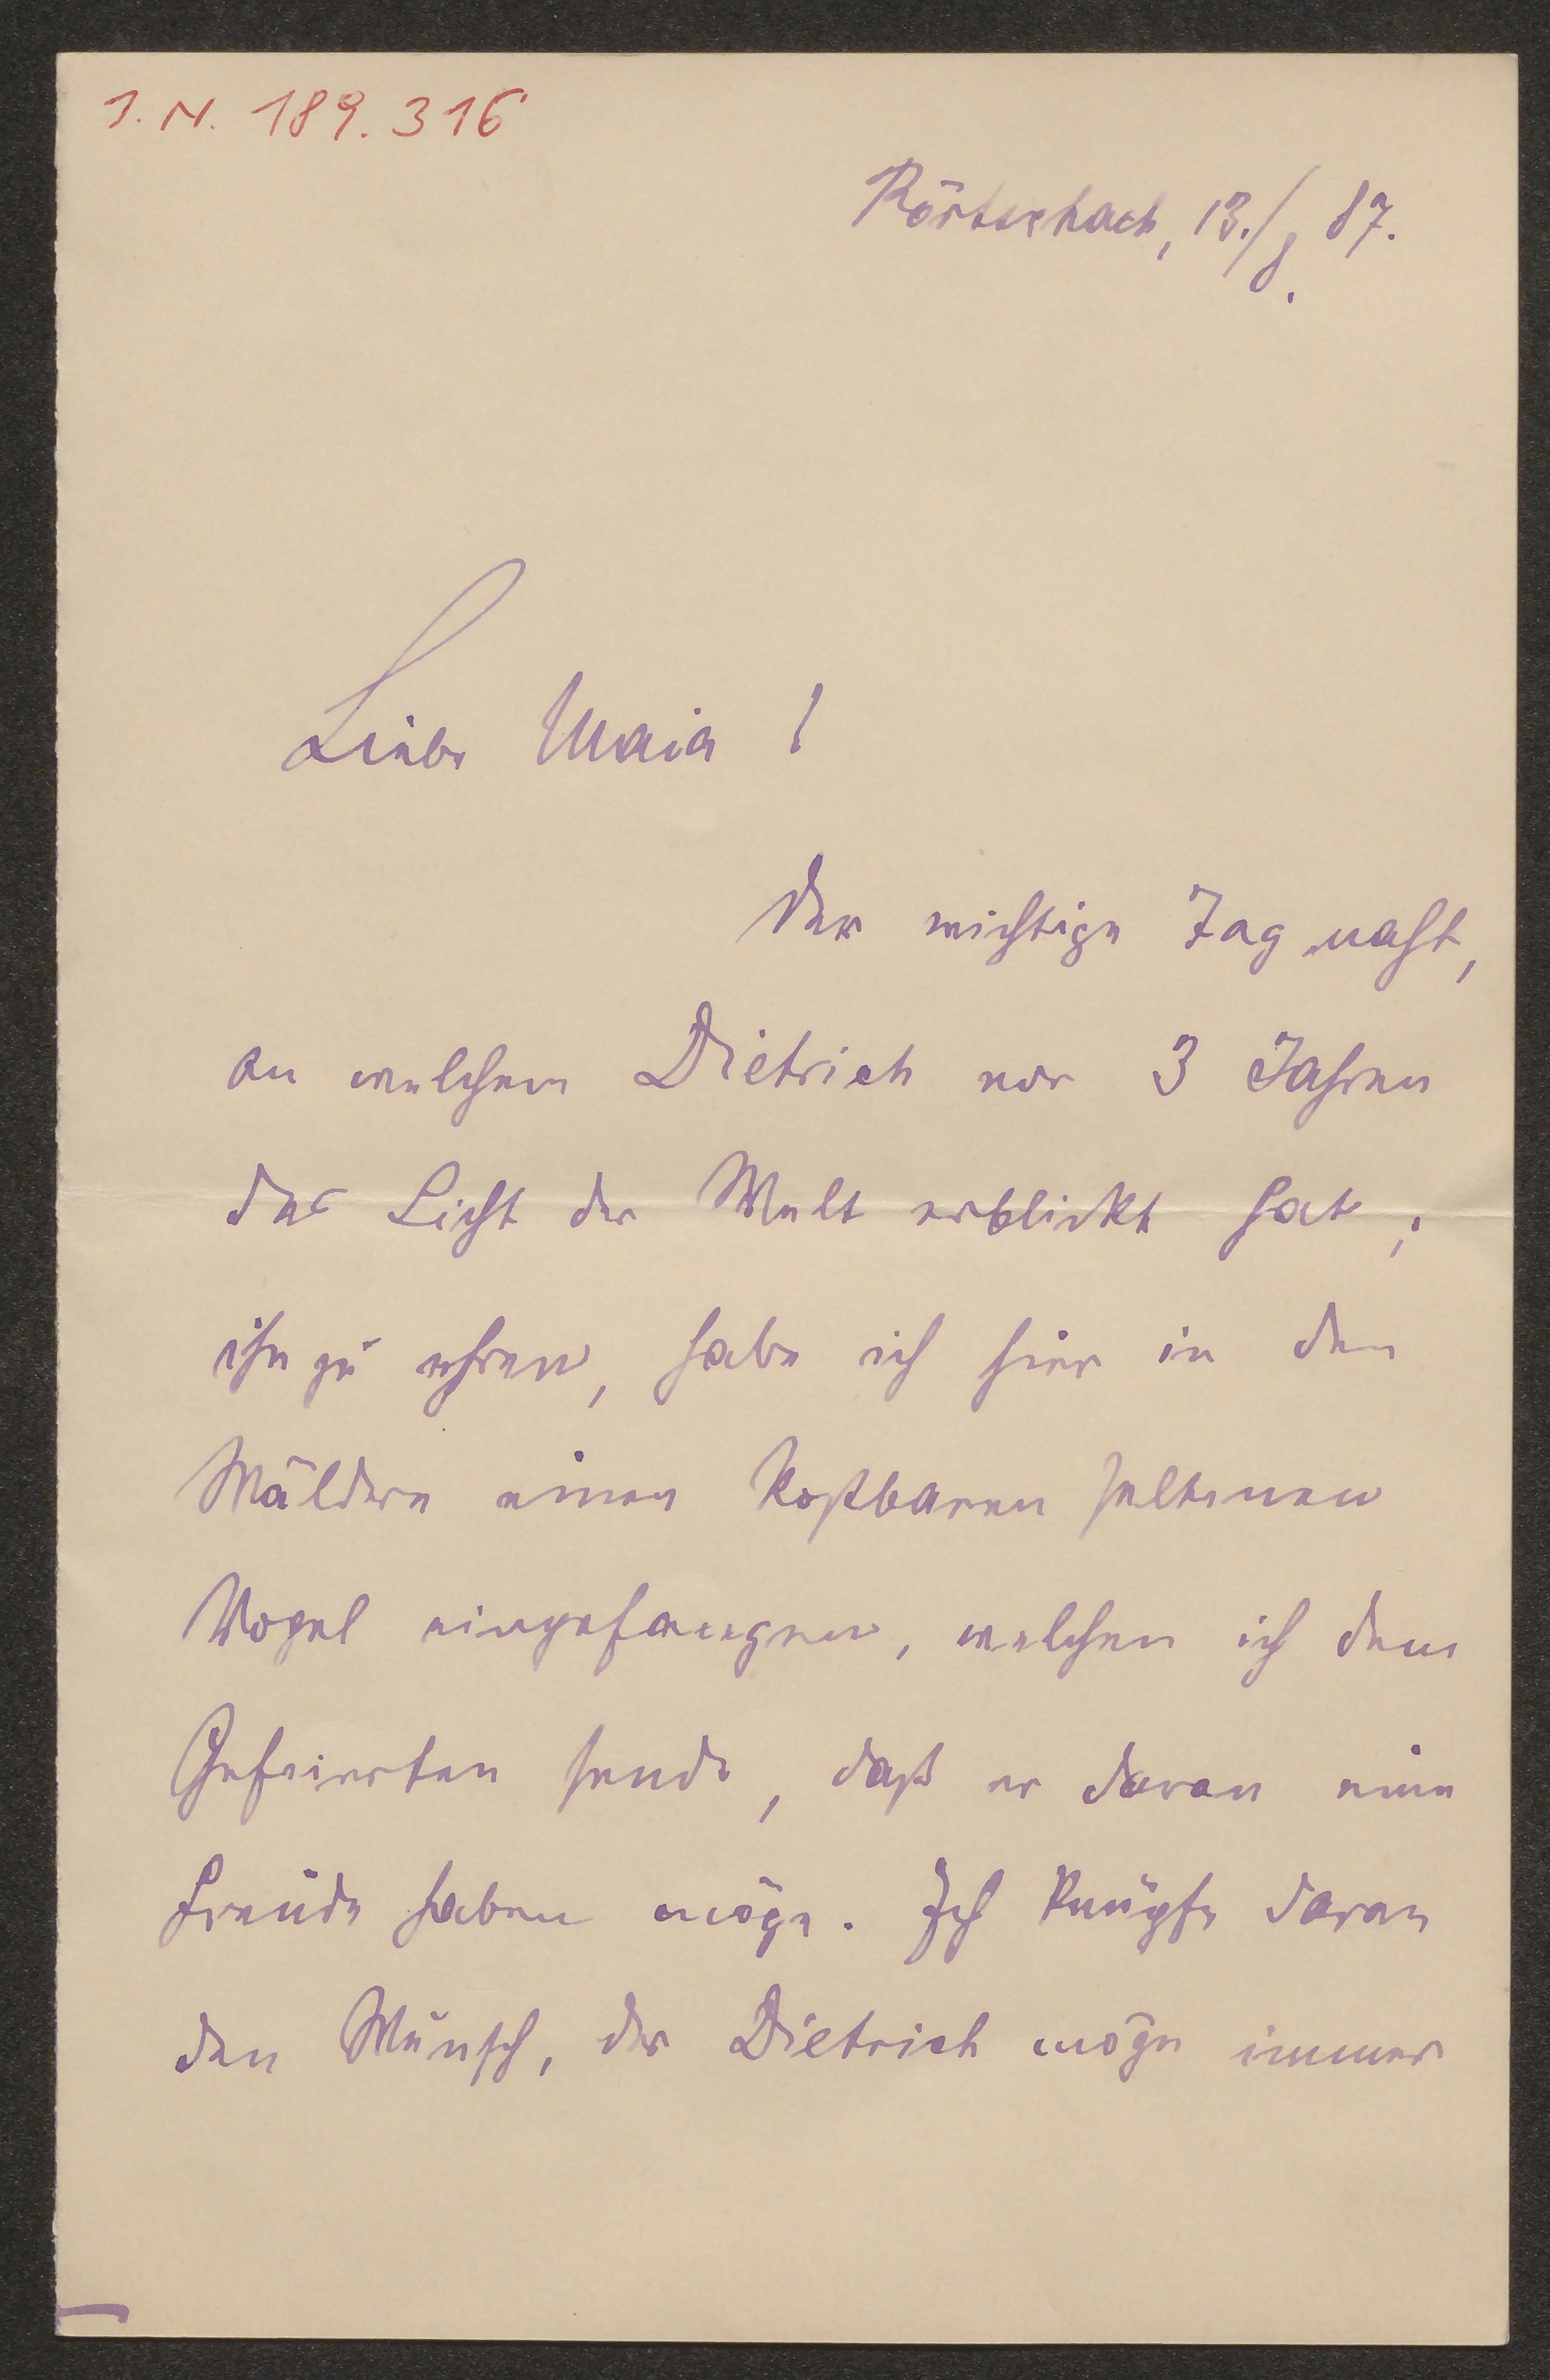 I.N. 189.316
Pörtschach, 13./8. 87.
Liebe Maja !
Der wichtige Tag naht,
an welchem Dietrich vor 3 Jahren
das Licht der Welt erblickt hat;
ihn zu ehren, habe ich hier in den
Wäldern einen kostbaren seltenen
Vogel eingefangen, welchen ich dem
Gefeierten sende, daß er daran eine
Freude haben möge. Ich knüpfe daran
den Wunsch, der Dietrich möge immer